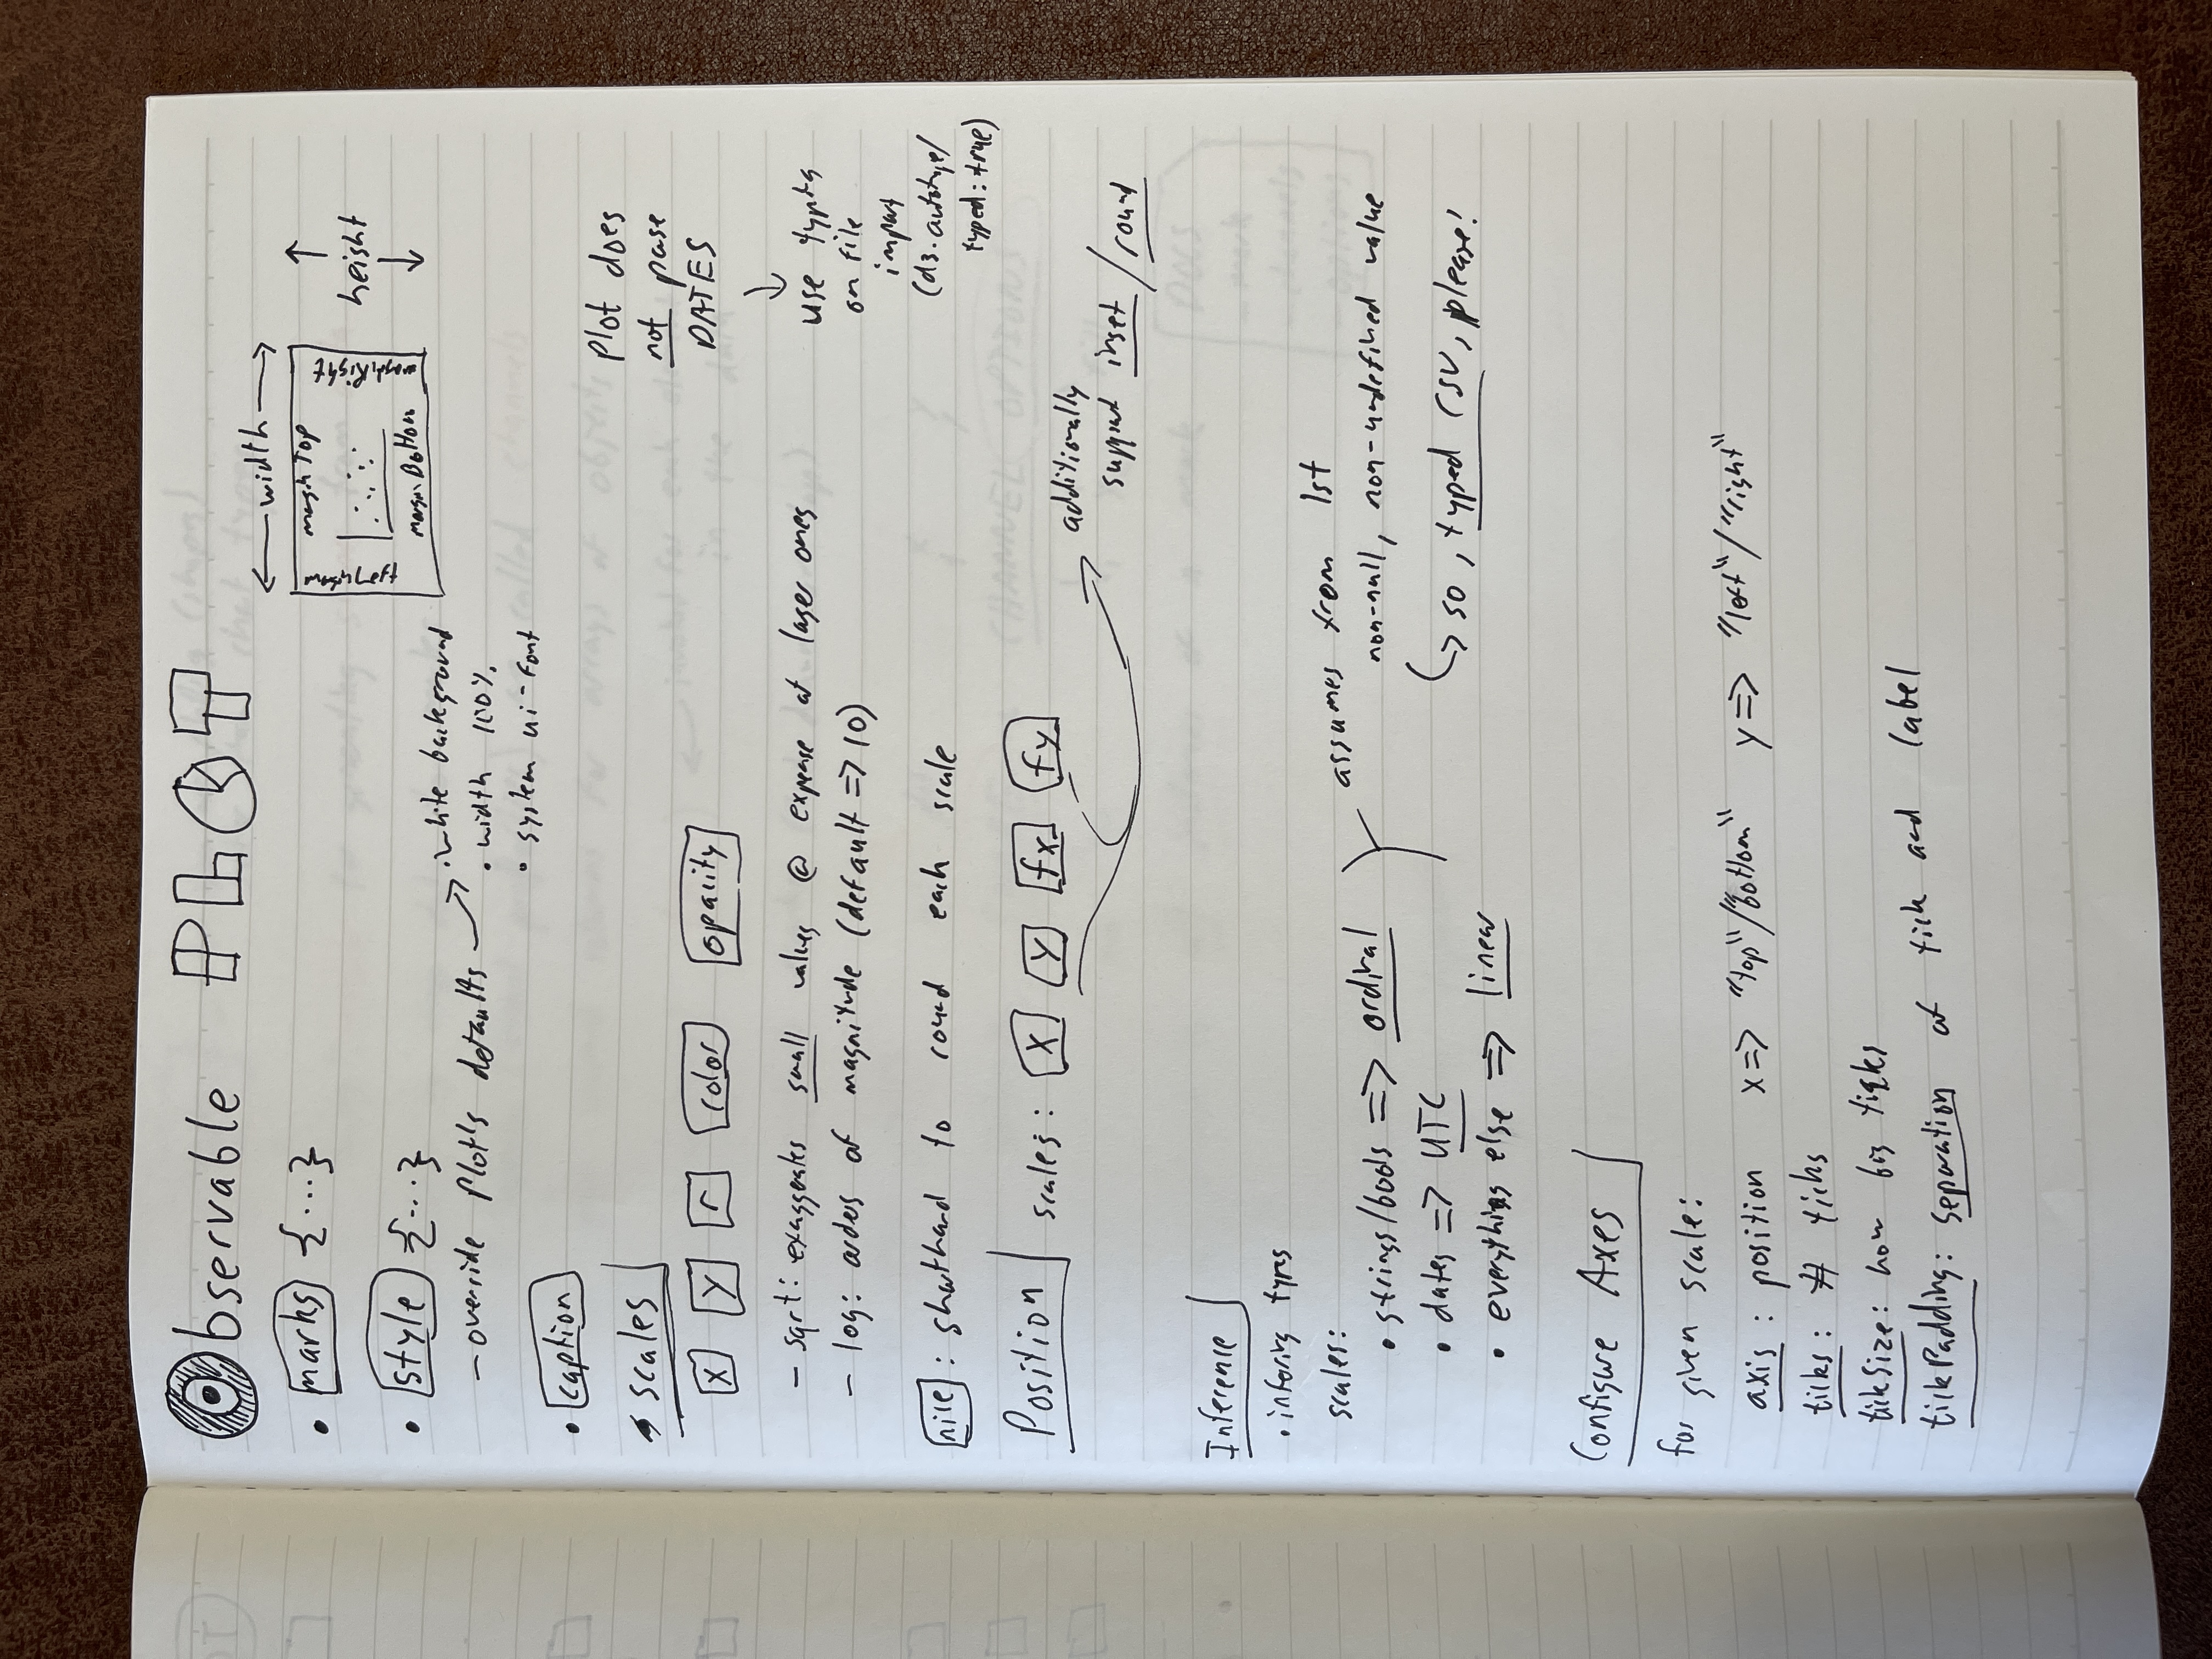 Observable PLOT
• marks {...}
• style {...}
– override Plot's defaults
• white background
• width 100%
• system ui-font
width
margin Top
marginLeft
marginRight
margin Bottom
height
• caption
• scales
x y r color opacity
– sqrt: exaggerates small values @ expense of larger ones
– log: orders of magnitude (default => 10)
Plot does
not parse
DATES
use typing
on file
import
(d3.autotype/
typed: true)
nice : shorthand to round each scale
Position scales: x y fx fy
additionally
support inset / round
Inference
• inferring types
scales:
• strings/bools => ordinal
• dates => UTC
• everything else => linear
assumes from 1st
non-null, non-undefined value
so, typed CSV, please!
Configure Axes
for given scale:
axis : position x => "top"/"bottom" y => "left"/"right"
ticks : # ticks
tickSize: how big ticks
tickPadding: separation of tick and label